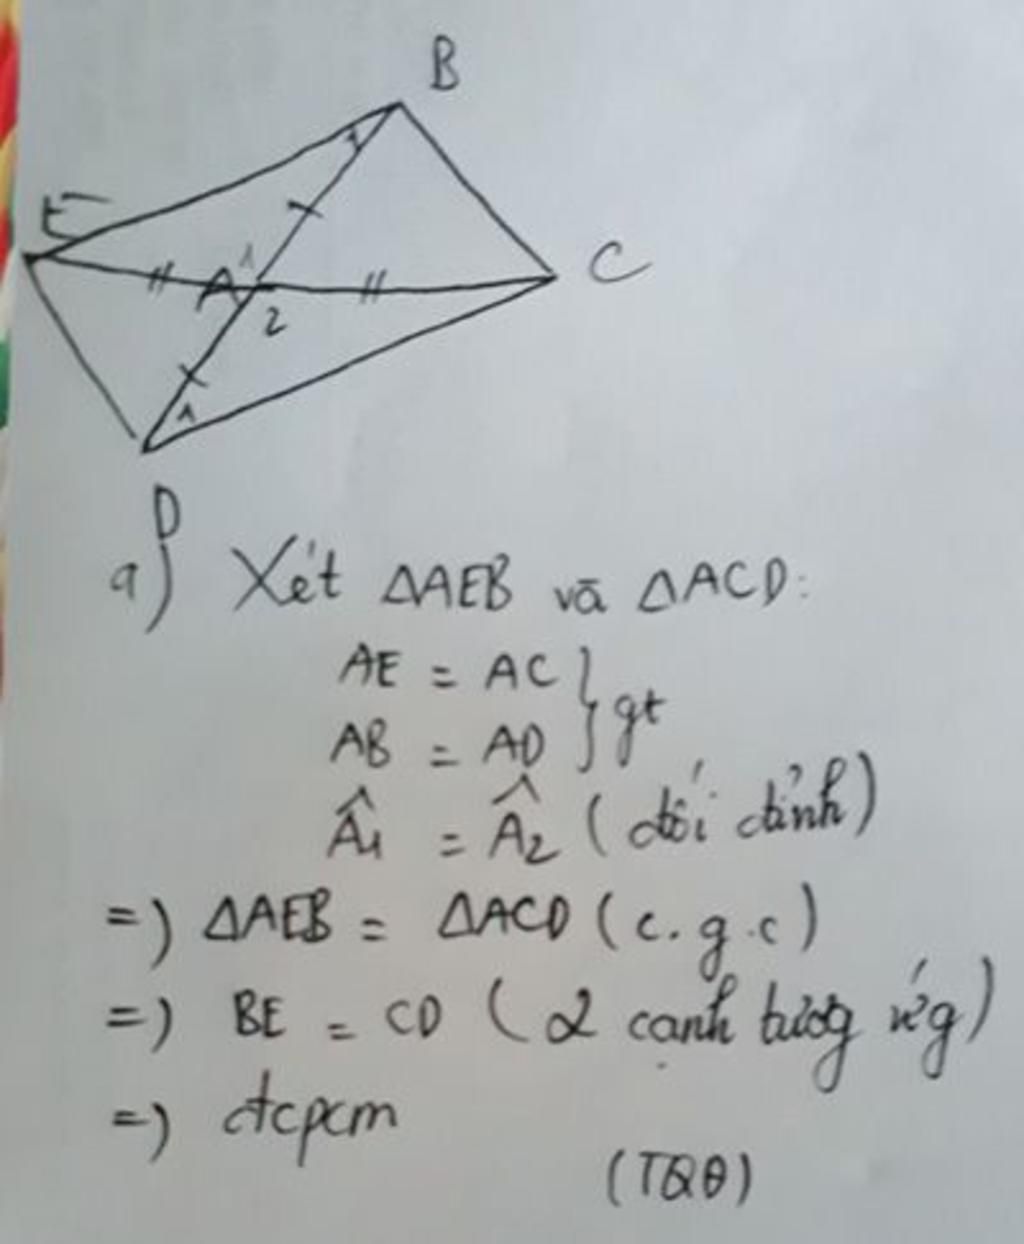 B
1
E
1
A
C
2
1
D
a) Xét ΔAEB và ΔACD:
AE = AC } gt
AB = AD
Â1 = Â2 (đối đỉnh)
=) ΔAEB = ΔACD (c.g.c)
=) BE = CD (2 cạnh tương ứng)
=) đcpcm
(TQĐ)